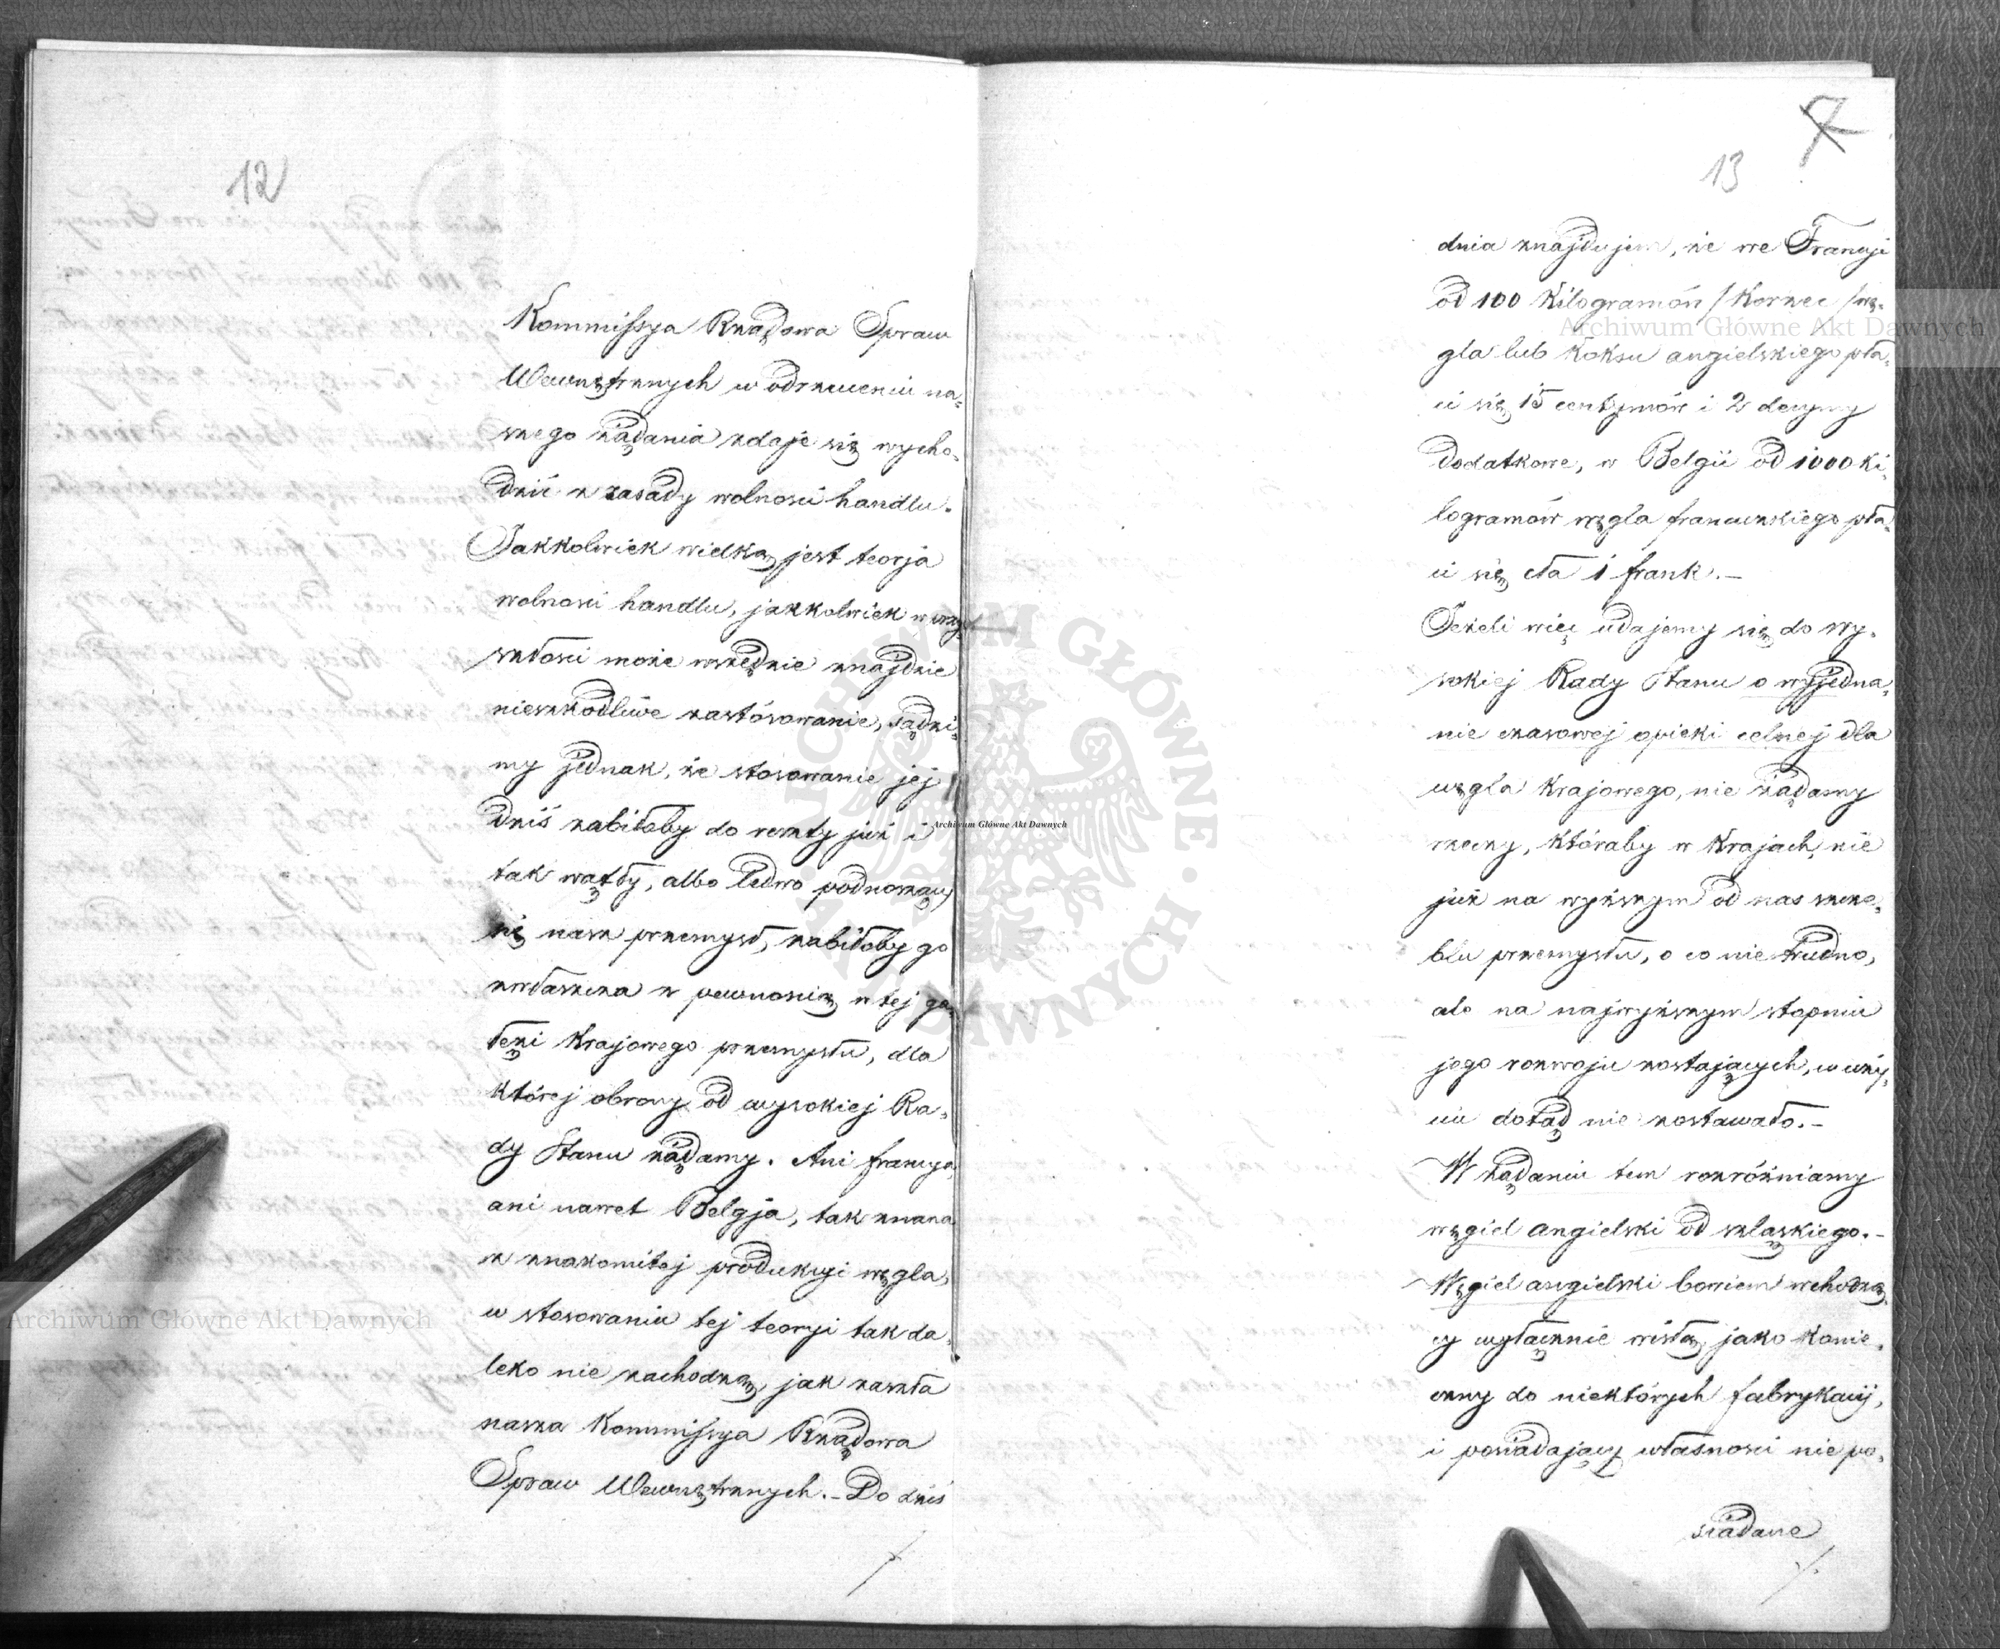 12
Kommissya Rządowa Spraw
Wewnętrznych w odrzuceniu na=
szego żądania zdaje się wycho=
dzić z zasady wolności handlu.
Jakkolwiek wielką jest teorja
wolności handlu, jakkolwiek w przy=
szłości może wszędzie znajdzie
nieszkodliwe zastósowanie, sądzi=
my jednak, że stosowanie jej
dziś zabiłoby do reszty już i
tak wątły, albo ledwo podnoszący
się nasz przemysł, zabiłoby go
zwłaszcza z pewnością w tej ga=
łęzi krajowego przemysłu, dla
której obrony od wysokiej Ra=
dy Stanu żądamy. Ani francya,
ani nawet Belgja, tak znana
z znakomitej produkcyi węgla,
w stosowaniu tej teoryi tak da=
leko nie zachodzą, jak zaszła
nasza Kommissya Rządowa
Spraw Wewnętrznych. – Do dziś
7
13
dnia znajdujem, że we Francyi
od 100 Kilogramów /Korzec/ wę=
gla lub Koksu angielskiego pła=
ci się 15 centymów i 2 decymy
dodatkowe, w Belgii od 1000 ki=
logramów węgla francuzkiego pła=
ci się cła 1 frank. –
Jeżeli więc udajemy się do wy=
sokiej Rady Stanu o wyjedna=
nie czasowej opieki celnej dla
węgla krajowego, nie żądamy
rzeczy, któraby w Krajach, nie
już na wyższym od nas szcze=
blu przemysłu, o co nie trudno,
ale na najwyższym stopniu
jego rozwoju zostających, w uży=
ciu dotąd nie zostawało. –
W żądaniu tem rozróżniamy
węgiel angielski od szląskiego. –
Węgiel angielski bowiem wchodzą=
cy wyłącznie wisłą, jako konie=
czny do niektórych fabrykacij,
i posiadający własności nie po=
siadane
Archiwum Główne Akt Dawnych
Archiwum Główne Akt Dawnych
Archiwum Główne Akt Dawnych
ARCHIWUM GŁÓWNE AKT DAWNYCH